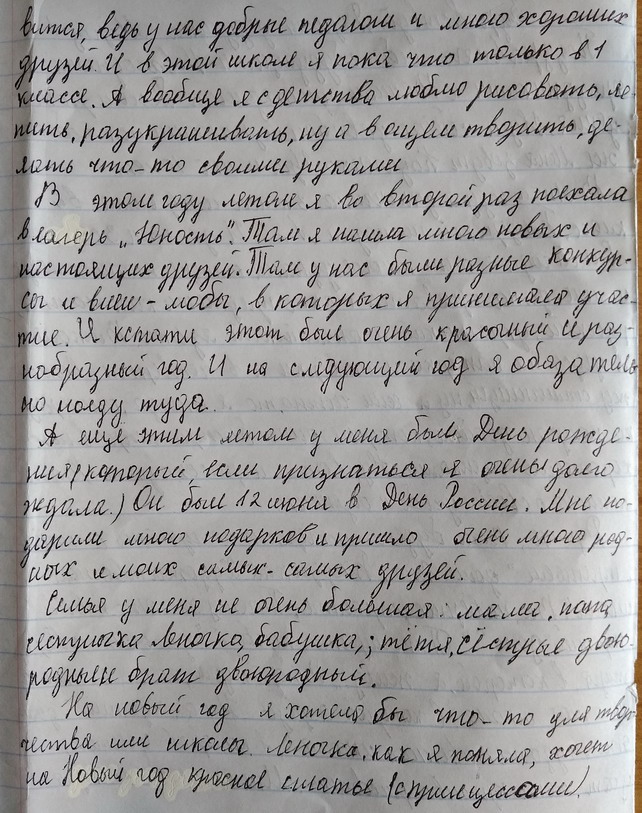 вится, ведь у нас добрые педагоги и много хороших
друзей. И в этой школе я пока что только в 1
классе. А вообще я с детства люблю рисовать, ле-
пить, разукрашивать, ну а в общем творить, де-
лать что-то своими руками
В этом году летом я во второй раз поехала
в лагерь „Юность". Там я нашла много новых и
настоящих друзей. Там у нас были разные конкур-
сы и влеш-мобы, в которых я принимала учас-
тие. И кстати этот был очень красочный и раз-
нобразный год. И на следующий год я обаза тель
но поеду туда.
А еще этим летом у меня был День рожде-
ния (который, если признаться я очень долго
ждала.) Он был 12 июня в День России. Мне по-
дарили много подарков и пришло очень много род-
ных и моих самых-самых друзей.
Семья у меня не очень большая: мама, папа
сестрычка Леночка, бабушка,; тётя, сёстры двою-
родные и брат двоюродный.
На новый год я хотела бы что-то для твор-
чества или школы. Леночка, как я поняла, хочет
на Новый год красное платье (с принцессами).